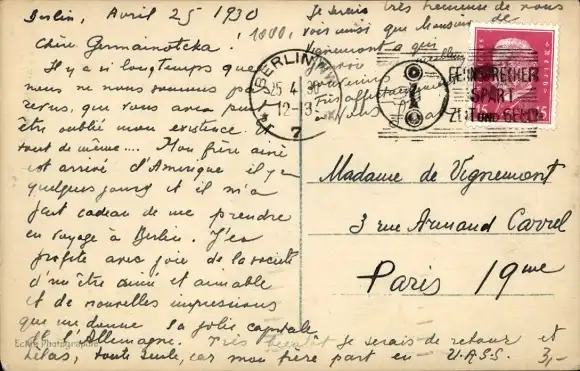 Berlin, Avril 25 1930
Chère Germainotcka!
Il y a si longtemps que
nous ne nous sommes pas
revus, que vous avez peut
être oublié mon existence. Et
tout de même.... Mon frère ainé
est arrivé d'Amerique il y a
quelques jours et il m'a
fait cadeau de me prendre
en voyage à Berlin. J'en
profite avec joie de la societé
d'un être aimé et aimable
et de nouvelles impressions
que me donne la jolie capitale
de l'Allemagne. Très bientôt je serais de retour et
hélas, toute seule, car mon frère part en U.A.S.S.
Je serais très heureuse de vous
voir ainsi que Monsieur de
Vignemont à qui
souvenirs
Très affectueusement
BERLIN
25.4.30
12-13
7
FERNSPRECHER
SPART
ZEIT UND GELD
15 15
Madame de Vignemont
3 rue Armand Carrel
Paris 19me
3,-
Echte Photographie